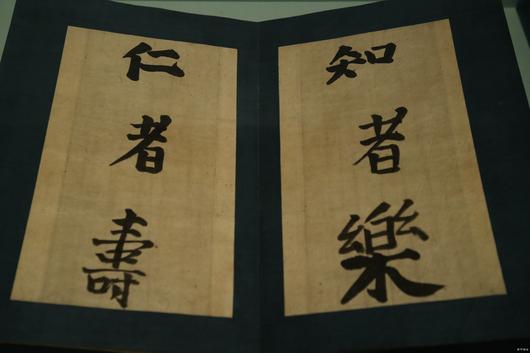 知者樂
仁者壽